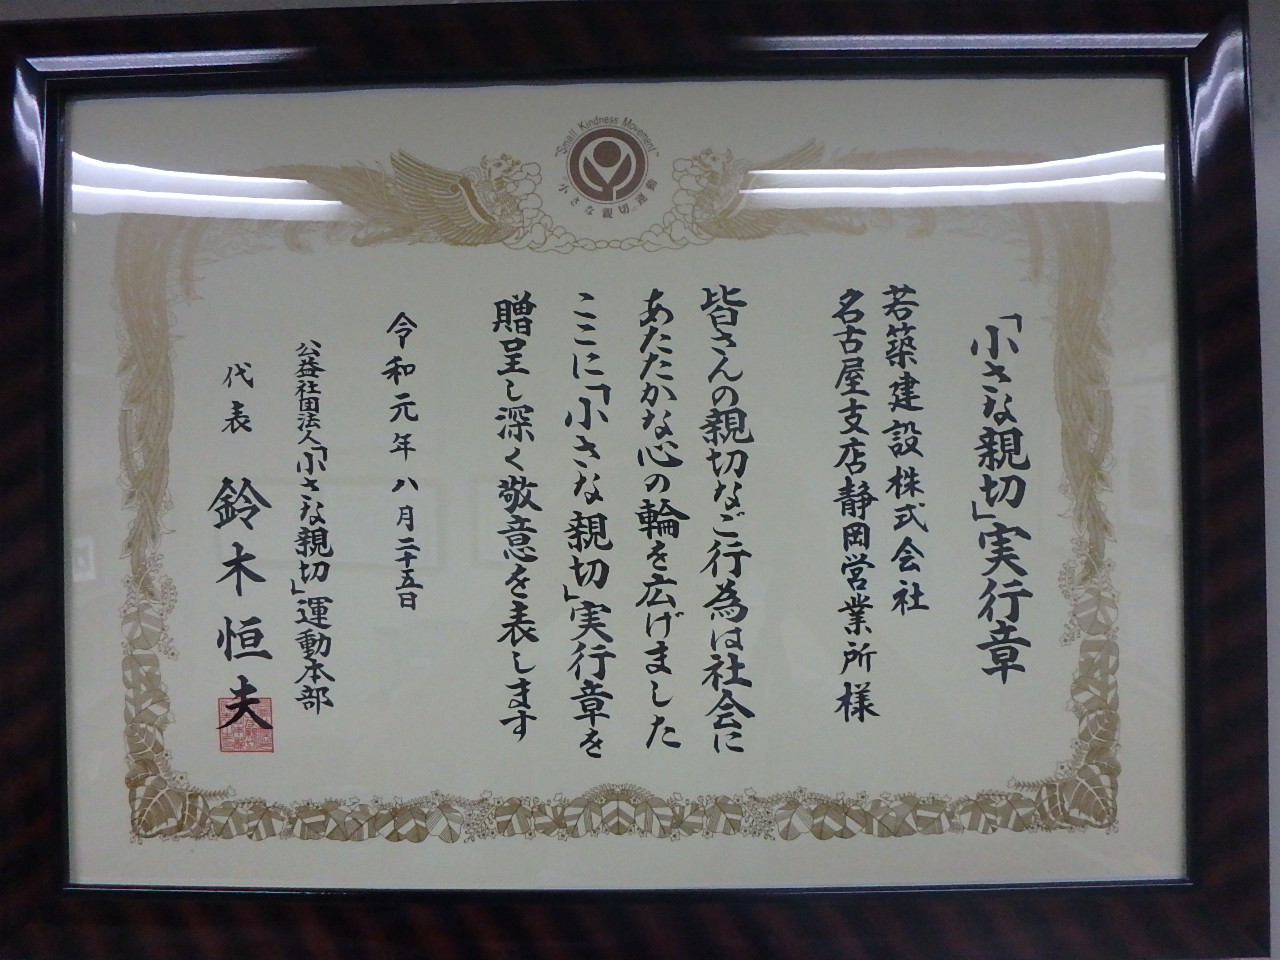 "Small Kindness Movement"
小さな親切運動
「小さな親切」実行章
若築建設株式会社
名古屋支店静岡営業所様
皆さんの親切なご行為は社会に
あたたかな心の輪を広げました
ここに「小さな親切」実行章を
贈呈し深く敬意を表します
令和元年八月二十五日
公益社団法人「小さな親切」運動本部
代表 鈴木恒夫